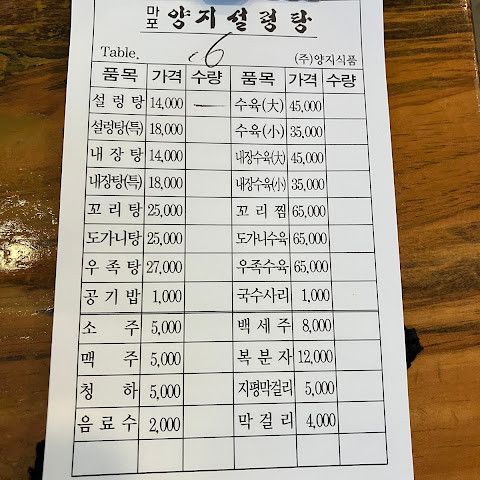 마포 양지설렁탕
Table. 6 (주)양지식품
품목 가격 수량 품목 가격 수량
설렁탕 14,000 — 수육(大) 45,000
설렁탕(특) 18,000 수육(小) 35,000
내장탕 14,000 내장수육(大) 45,000
내장탕(특) 18,000 내장수육(小) 35,000
꼬리탕 25,000 꼬리찜 65,000
도가니탕 25,000 도가니수육 65,000
우족탕 27,000 우족수육 65,000
공기밥 1,000 국수사리 1,000
소주 5,000 백세주 8,000
맥주 5,000 복분자 12,000
청하 5,000 지평막걸리 5,000
음료수 2,000 막걸리 4,000